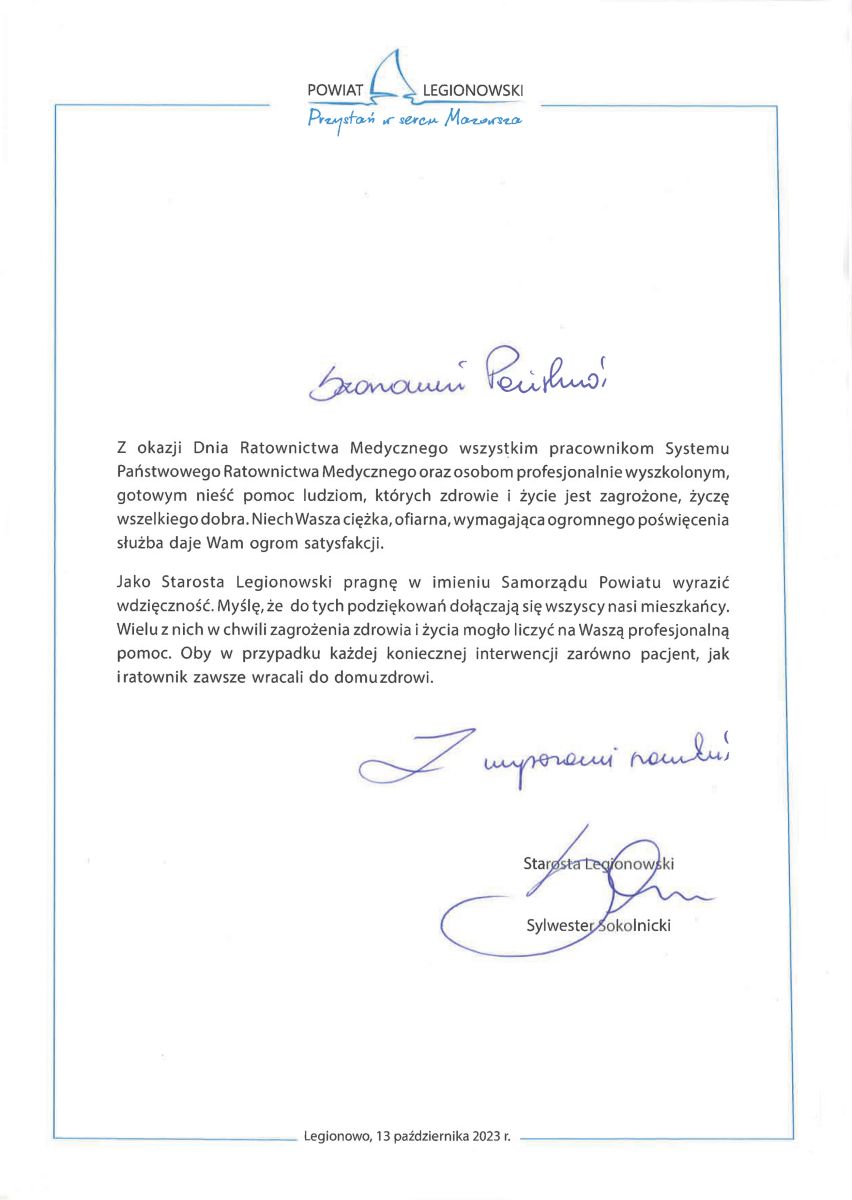 POWIAT LEGIONOWSKI
Przystań w sercu Mazowsza
Szanowni Państwo,
Z okazji Dnia Ratownictwa Medycznego wszystkim pracownikom Systemu
Państwowego Ratownictwa Medycznego oraz osobom profesjonalnie wyszkolonym,
gotowym nieść pomoc ludziom, których zdrowie i życie jest zagrożone, życzę
wszelkiego dobra. Niech Wasza ciężka, ofiarna, wymagająca ogromnego poświęcenia
służba daje Wam ogrom satysfakcji.
Jako Starosta Legionowski pragnę w imieniu Samorządu Powiatu wyrazić
wdzięczność. Myślę, że do tych podziękowań dołączają się wszyscy nasi mieszkańcy.
Wielu z nich w chwili zagrożenia zdrowia i życia mogło liczyć na Waszą profesjonalną
pomoc. Oby w przypadku każdej koniecznej interwencji zarówno pacjent, jak
i ratownik zawsze wracali do domu zdrowi.
Z wyrazami szacunku
Starosta Legionowski
Sylwester Sokolnicki
Legionowo, 13 października 2023 r.